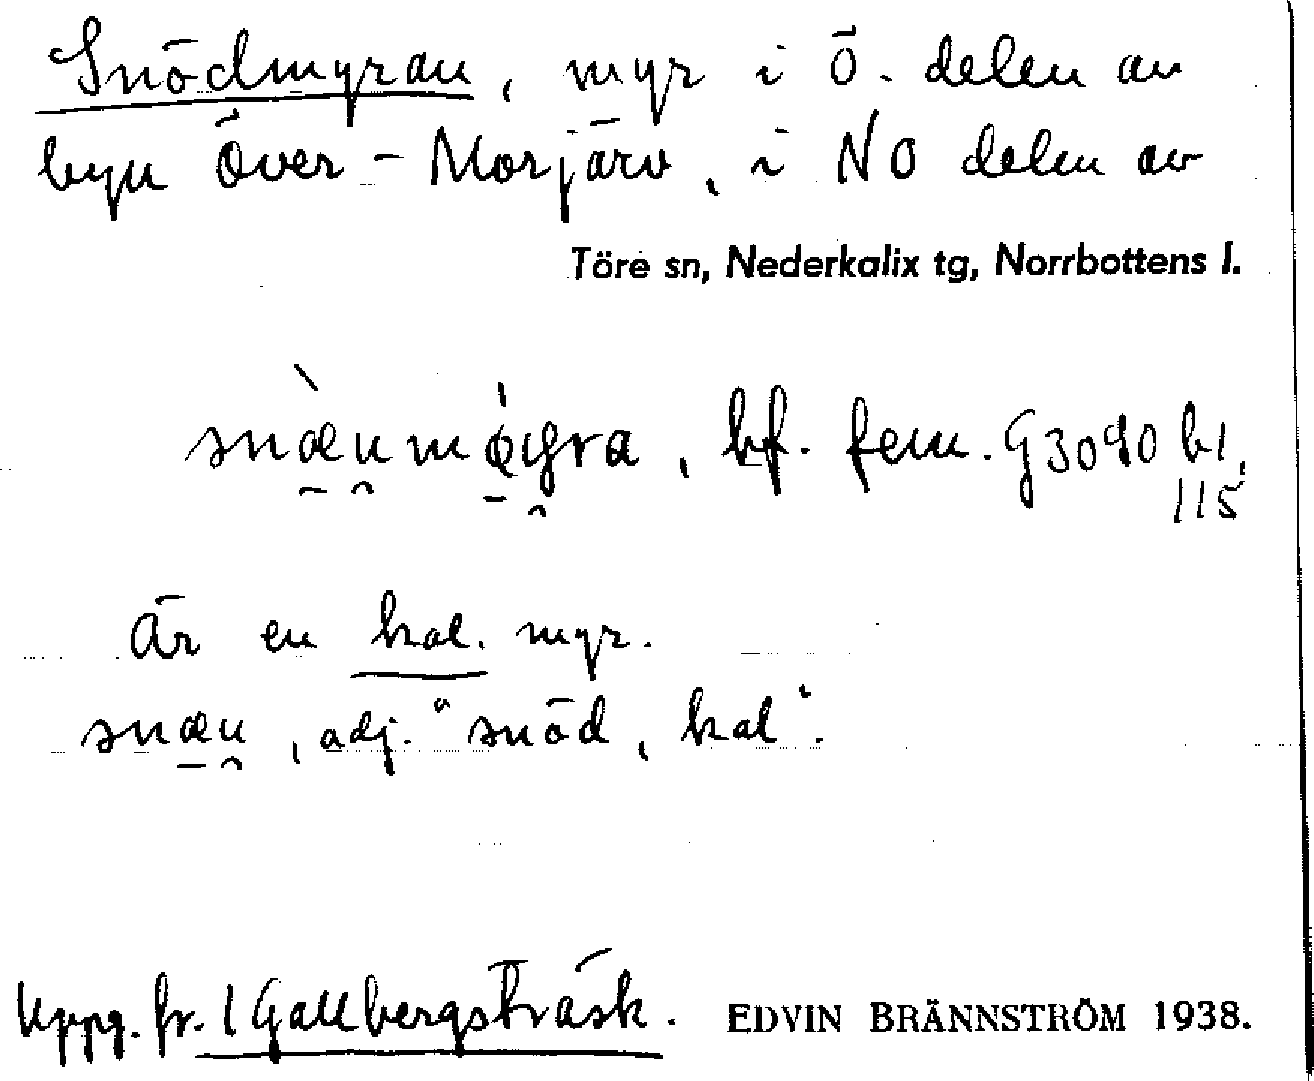 Snödmyran, myr i Ö. delen av
byn Över-Morjärv, i NO delen av
Töre sn, Nederkalix tg, Norrbottens l.
snæu̯møy̯ra, bf. fem. G3090 b1,
115
Är en kal. myr.
snæu̯, adj. "snöd, kal".
Uppg. fr. 1 Gallbergsträsk. EDVIN BRÄNNSTRÖM 1938.